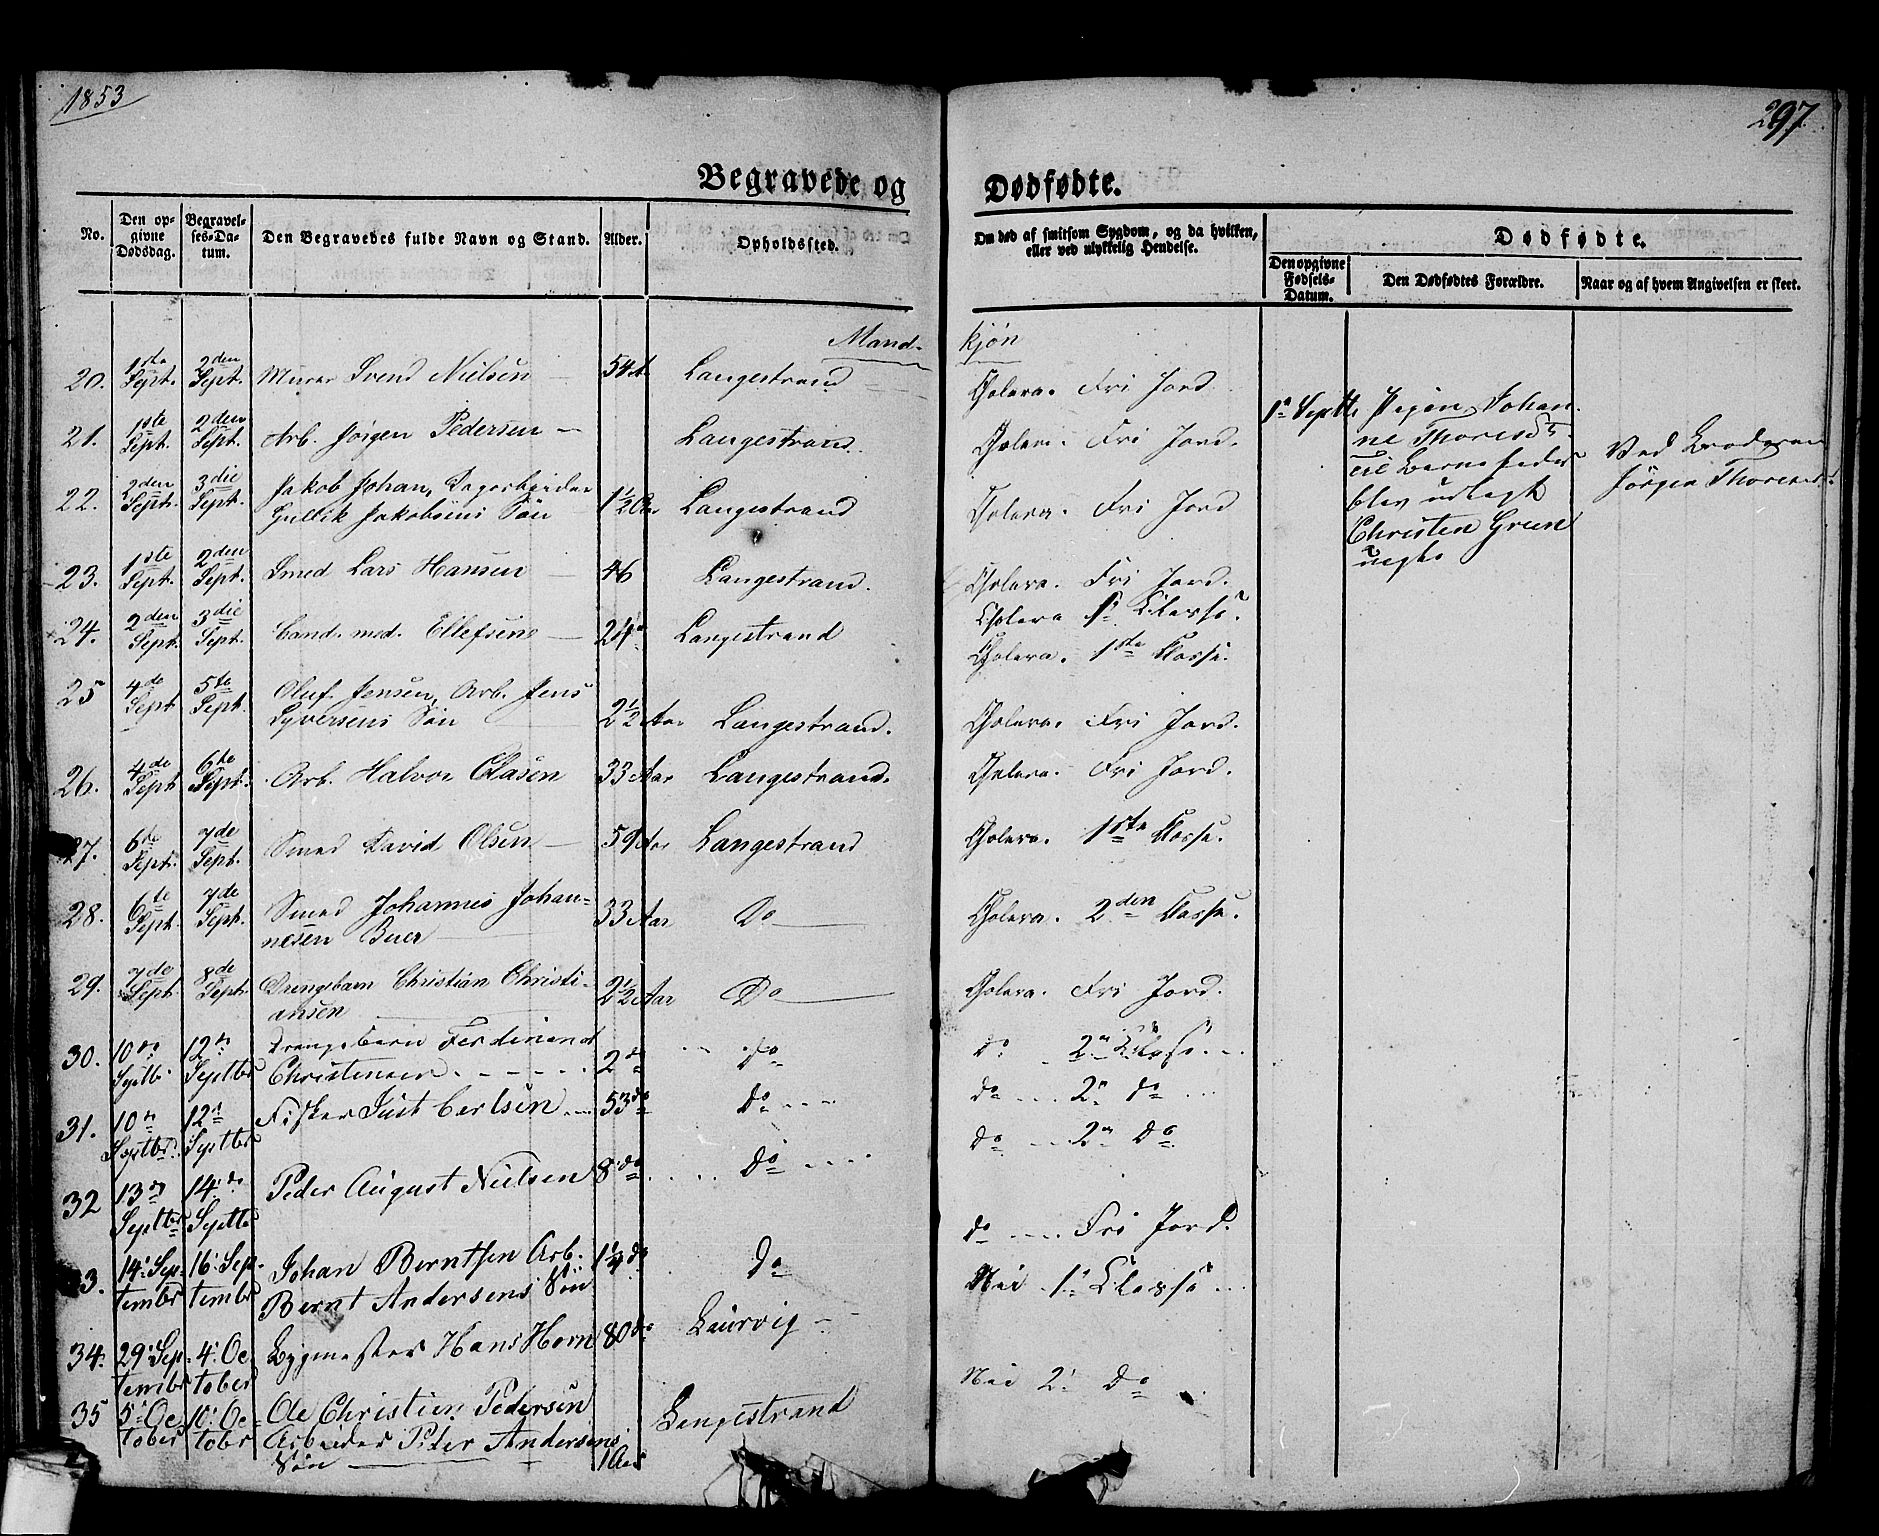 1853
297
Begravede og Dødfødte.
No.
Den opgivne Dødsdag.
Begravelses-Datum.
Den Begravedes fulde Navn og Stand.
Alder.
Opholdssted.
Om død af smitsom Sygdom, og da hvilken, eller ved ulykkelig Hendelse.
Dødfødte.
Den opgivne Fødsels-Datum.
Den Dødfødtes Forældre.
Naar og af hvem Angivelsen er skeet.
Mand-kjøn
20. 1ste Sept. 2den Sept. Murer Svend Nielsen 54 Langestrand Cholera. Fri Jord
21. 1ste Sept. 2den Sept. Arb. Jørgen Pedersen Langestrand. Cholera. Fri Jord.
22. 2den Sept. 3die Sept. Jakob Johan, Dagarbeider
Gullik Jakobsens Søn 1½ Aar Langestrand Cholera. Fri Jord
23. 1ste Sept. 2den Sept. Smed Lars Hansen 46 Langestrand. Cholera. Fri Jord.
Cholera 1ª Klasse.
24. 2den Sept. 3die Sept. Cand. med. Ellefsen 24 Langestrand Cholera. 1ste Klasse.
25 4de Sept 5te Sept. Oluf Jensen, Arb. Jens
Syversens Søn 2½ Aar Langestrand. Cholera. Fri Jord.
26. 4de Sept 6te Sept. Arb. Halvor Olasen 33 Aar Langestrand. Cholera. Fri Jord.
27. 6te Sept. 7de Sept. Smed David Olsen 59 Aar Langestrand Cholera. 1ste Klasse.
28. 6te Sept. 7de Sept. Smed Johannes Johan-
nesen Buer 33 Aar Do Cholera. 2den Klasse.
29. 7de Sept. 8de Sept. Drengebarn Christian Christi-
ansen 2½ Aar Do Cholera. Fri Jord.
30. 10de Septb. 12te Septbr Drengebarn Ferdinand
Christensen 2 do do do 2n Klasse
31. 10n Septbr. 12n Septbr Fisker Just Carlsen 53 do do do 2n do
do 2n do
32 13n Septbr 14de Septbr Peder August Nielsen 8 do do
do Fri Jord.
33. 14 September 16 September Johan Berntsen Arb.
Bernt Andersens Søn 1¼ do do Nei 1ª Klasse
34. 29 September 4 October Bygmester Hans Horn 80 do Laurvig Nei 2ª do
35 5 October 10 October Ole Christian Pedersen
Arbeider Peder Andersens
Søn 1 Aar Langestrand
1ª Septbr Pigen Johan-
ne Thoresdtr.
Til Barnefader
blev udlagt
Christen Green
Ved Broderen
Jörgen Thoresen.